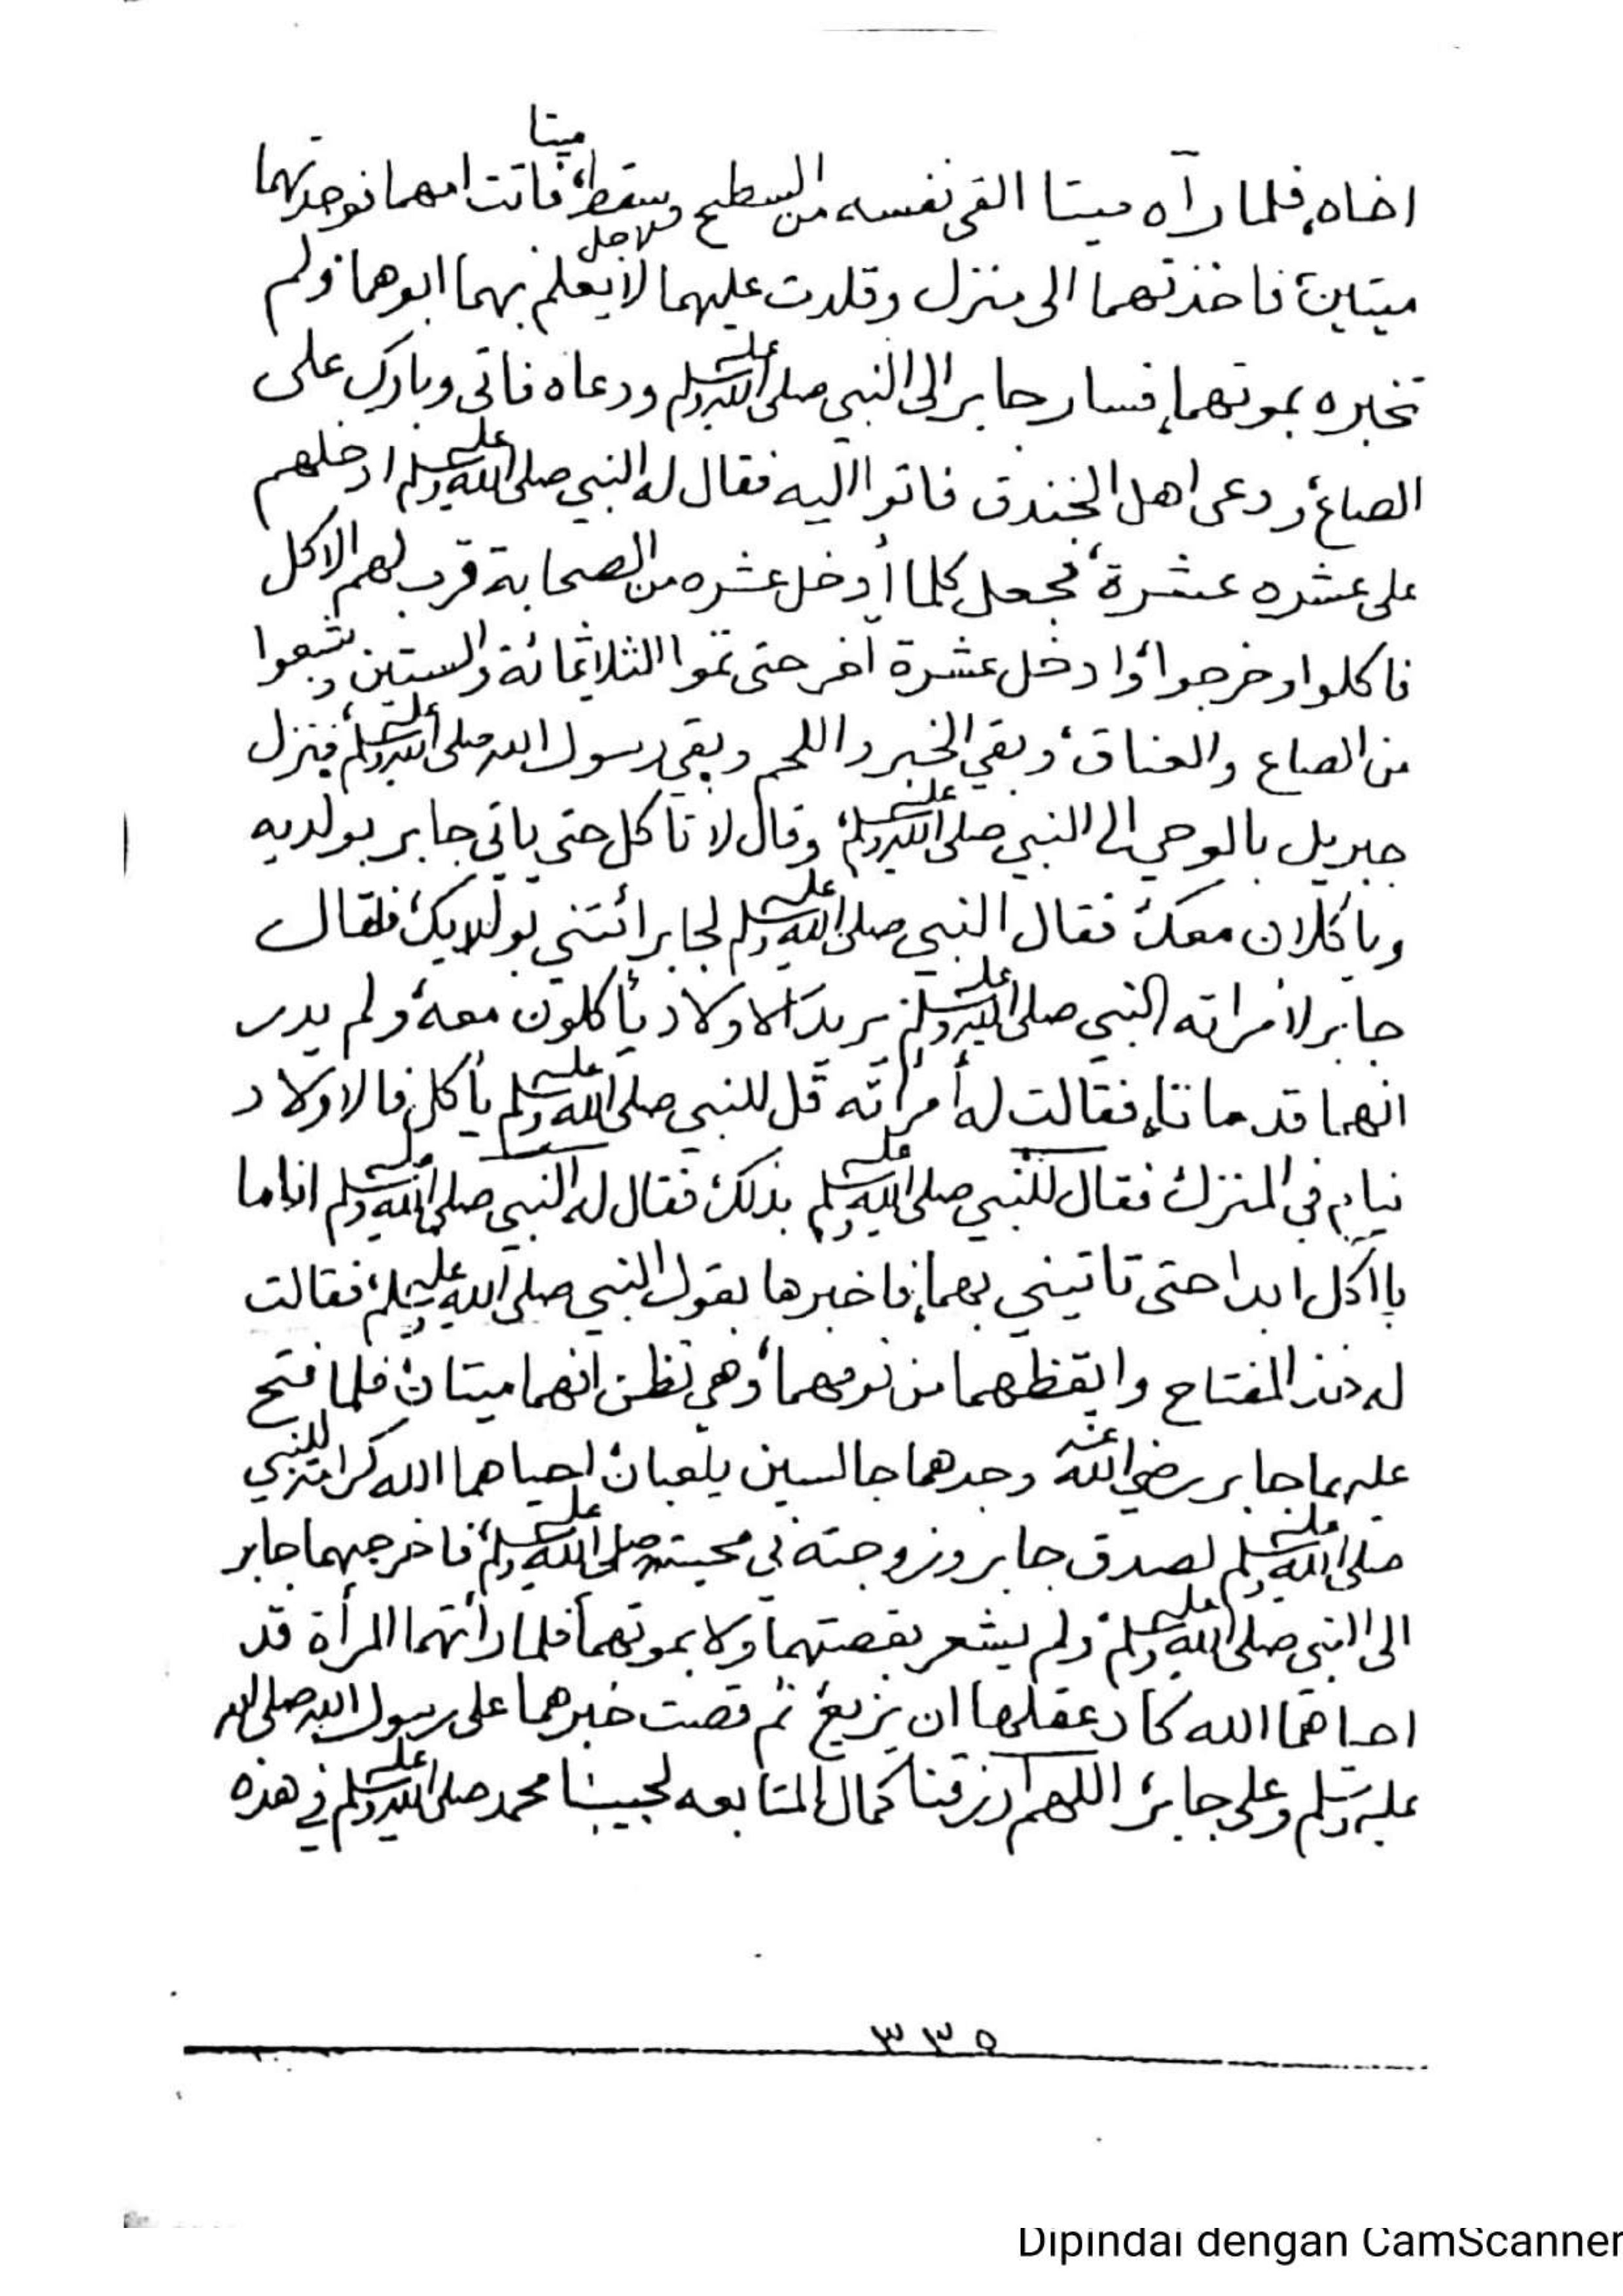 ميتا
اخاه، فلما رآه ميتا القى نفسه من السطح وسقط، فاتت امهما فوجدتهما
لاجل
ميتين، فاخذتهما الى منزل وقلدت عليهما لا يعلم بهما ابوهما ولم
تخبره بموتهما، فسار جابر الى النبي صلى الله عليه وسلم ودعاه فاتى وبارك على
الصاع، ودعى اهل الخندق فاتوا اليه فقال له النبي صلى الله عليه وسلم ادخلهم
على عشره عشرة، فجعل كلما أدخل عشره من الصحابة قرب لهم الاكل
فاكلوا وخرجوا، وادخل عشرة آخر حتى تموا الثلاثمائة والستين وشبعوا
من الصاع والعناق، وبقي الخبر واللحم وبقي رسول الله صلى الله عليه وسلم، فنزل
جبريل بالوحي الى النبي صلى الله عليه وسلم، وقال لا تاكل حتى ياتي جابر بولديه
وياكلان معك، فقال النبي صلى الله عليه وسلم لجابر ائتني بولديك، فقال
جابر لامراته النبي صلى الله عليه وسلم يريد الاولاد ياكلون معه، ولم يدر
انهما قد ماتا، فقالت له أمرأته قل للنبي صلى الله عليه وسلم يأكل فالاولاد
نيام في المنزل، فقال للنبي صلى الله عليه وسلم بذلك، فقال له النبي صلى الله عليه وسلم انا ما
باأكل ابدا حتى تاتيني بهما، فاخبرها بقول النبي صلى الله عليه وسلم، فقالت
له خذ المفتاح وايقظهما من نومهما، وهي تظن انهما ميتان، فلما فتح
عليهما جابر رضي الله عنه وجدهما جالسين يلعبان، احياهما الله كرامة للنبي
صلى الله عليه وسلم لصدق جابر وزوجته في محبته صلى الله عليه وسلم، فاخرجهما جابر
الى النبي صلى الله عليه وسلم، ولم يشعر بقصتهما ولا بموتهما، فلما رأتهما المرأة قد
احياهما الله كاد عقلها ان يزيغ، ثم قصت خبرهما على رسول الله صلى الله
عليه وسلم وعلى جابر، اللهم ارزقنا كمال المتابعه لحبيبنا محمد صلى الله عليه وسلم في هذه
٣٣٥
Dipindai dengan CamScanner